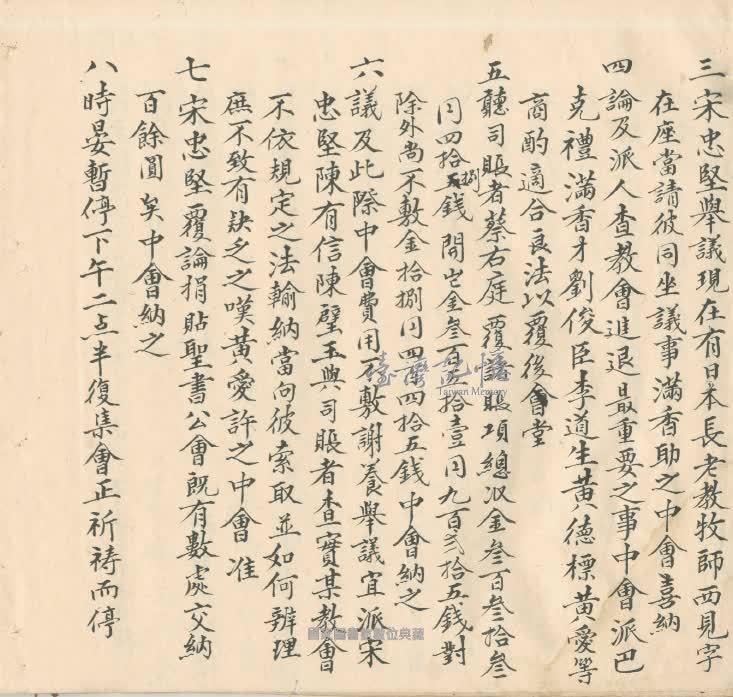 三 宋忠堅舉議現在有日本長老教牧師西見字
在座當請彼同坐議事滿香助之中會喜納
四 論及派人查教會進退最重要之事中會派巴
克禮滿香才劉俊臣李道生黃德標黃愛等
商酌適合良法以覆後會堂
五 聽司賬者蔡右庭覆論賬項總收金叁百叁拾叁
円四拾捌錢開出金叁百拾壹円九百弍拾五錢對
除外尚不敷金拾捌円四四拾五錢中會納之
六 議及此際中會費用不敷謝養舉議宜派宋
忠堅陳有信陳璧玉與司賬者查實某教會
不依規定之法輸納當向彼索取並如何辨理
庶不致有缺乏之嘆黃愛許之中會准
七 宋忠堅覆論捐貼聖書公會既有數處交納
百餘圓矣中會納之
八 時晏暫停下午二点半復集會正祈禱而停
臺灣記憶
Taiwan Memory
國家圖書館數位典藏